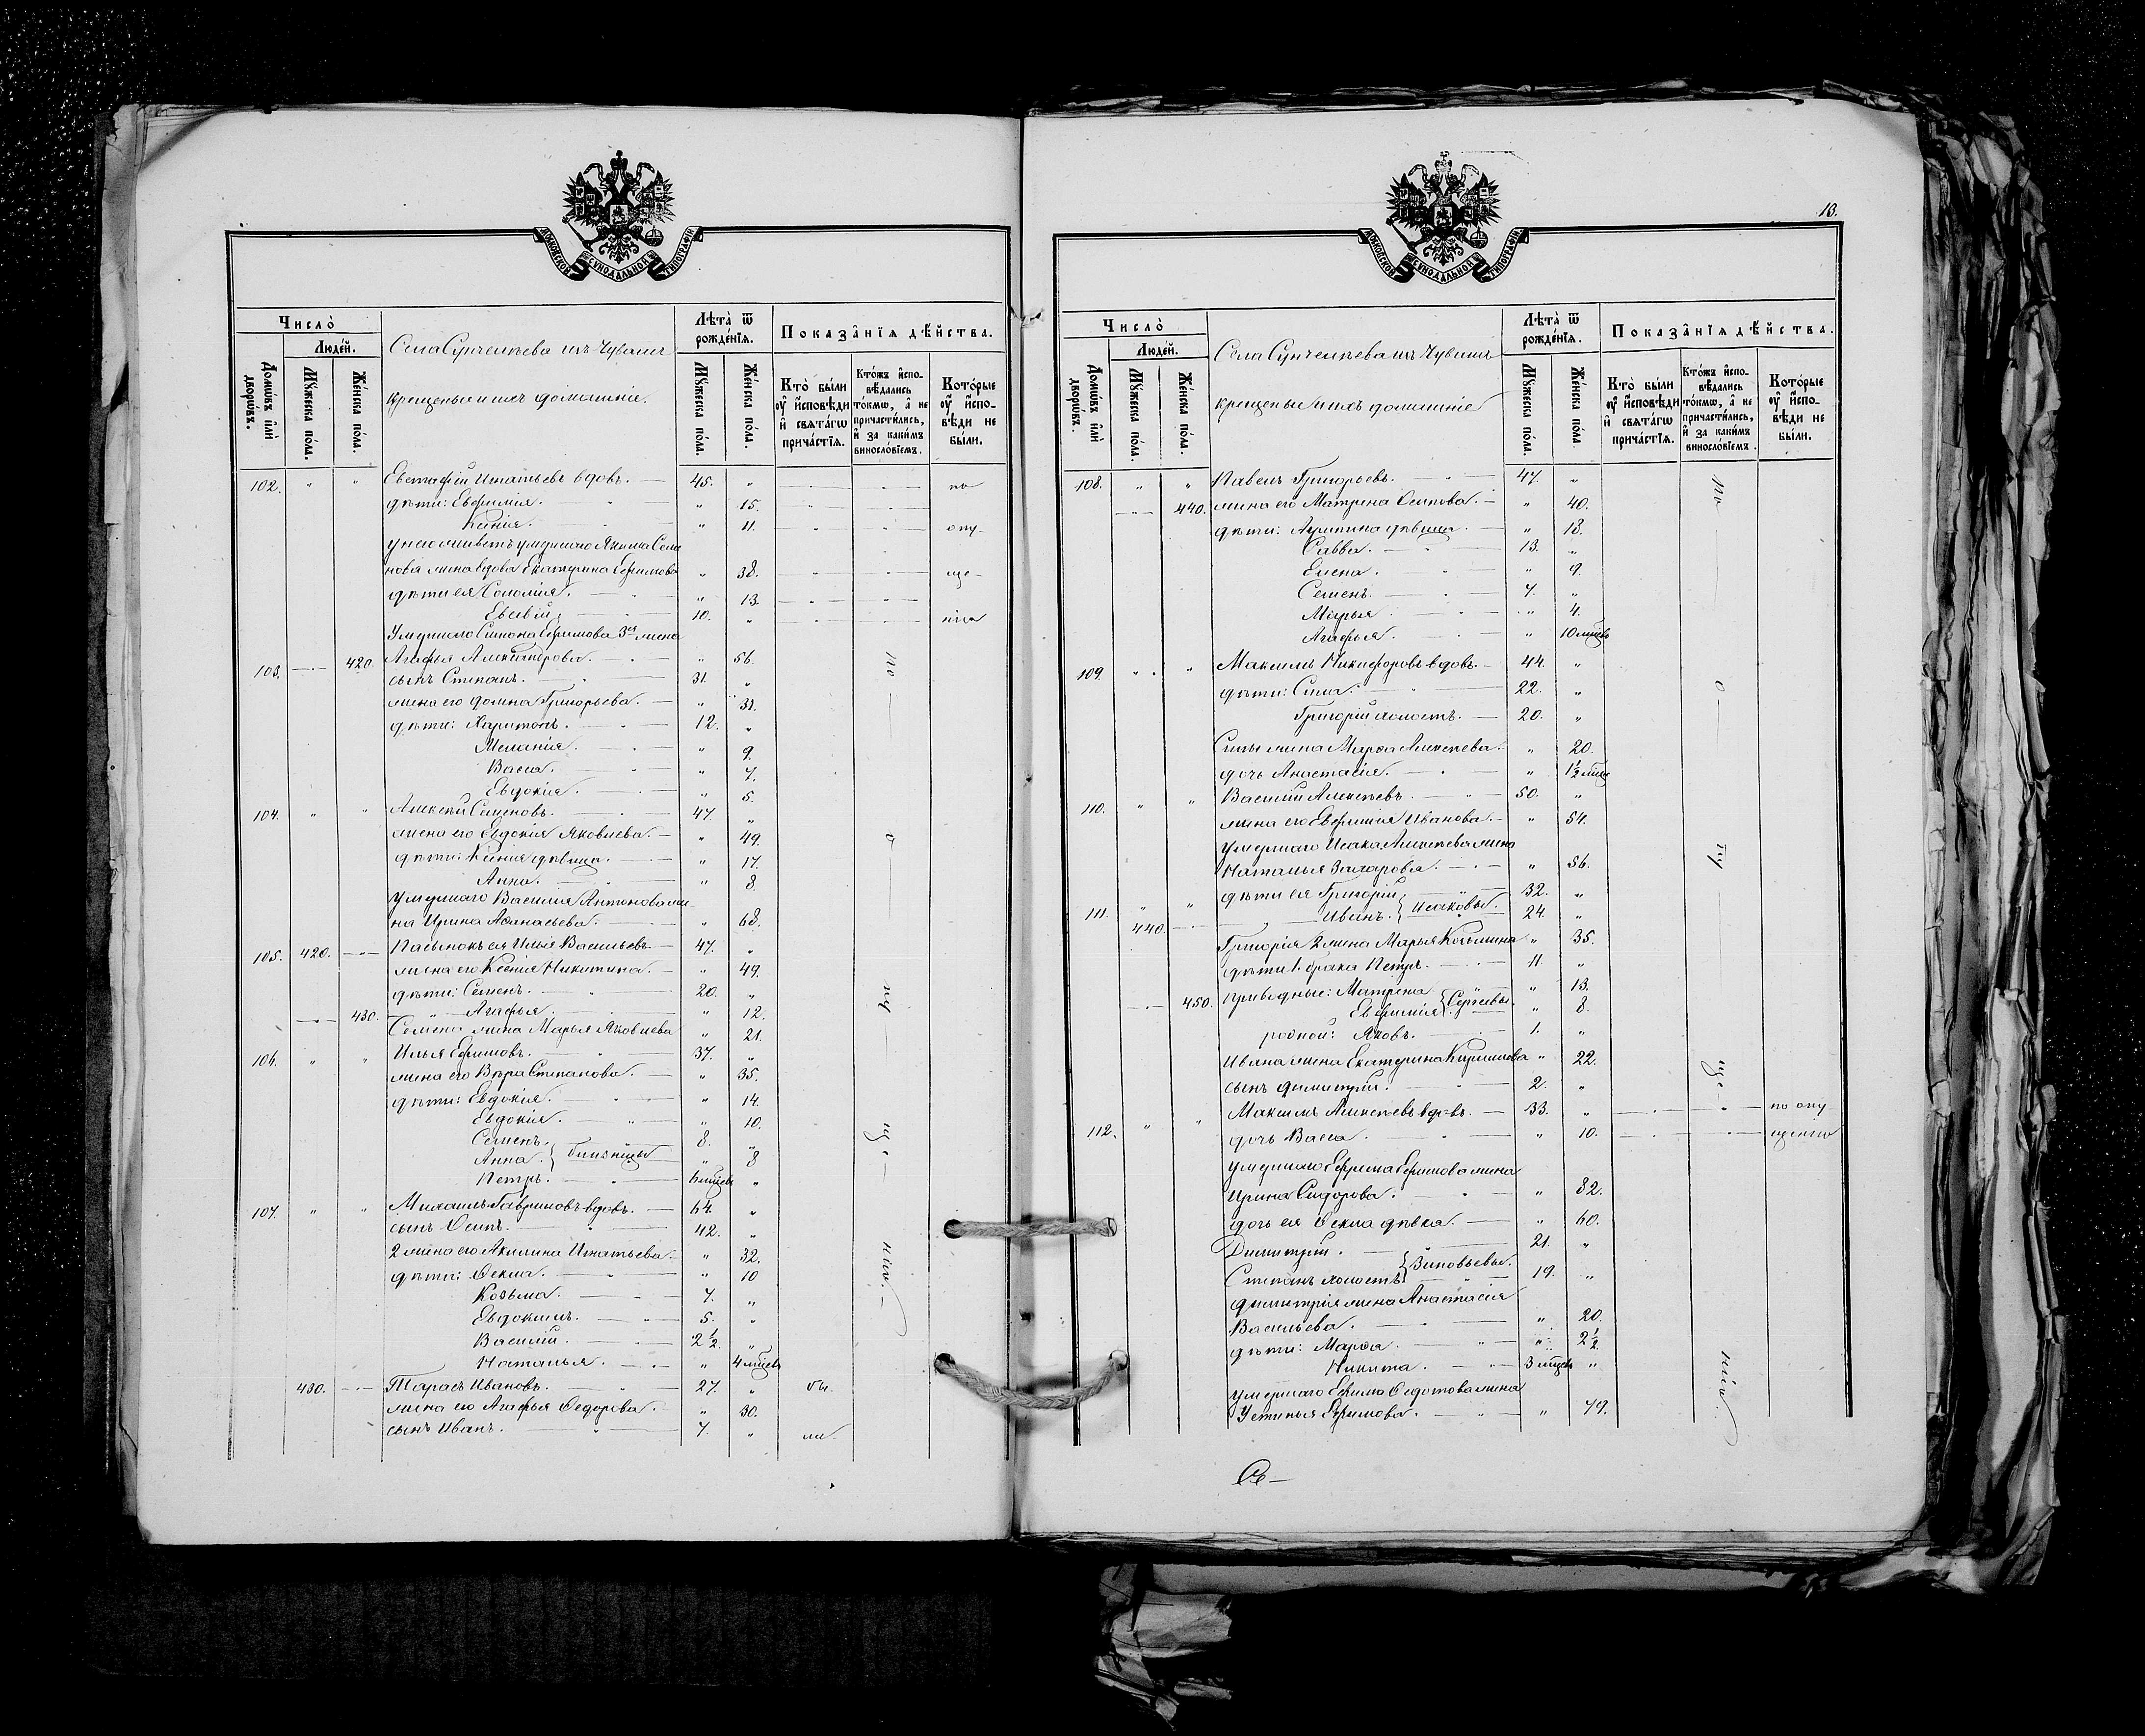 МОСКОВСКОЙ СѴНОДАЛЬНОЙ ТИПОГРАФІИ
Число̀
Люде́й.
Домѡ́въ и҆лѝ дворѡ́въ.
Мꙋ́жеска по́ла.
Же́нска по́ла.
Села Сунчелѣева изъ Чувашъ
крещеные и ихъ домашніе.
Лѣ́та ѿ рожде́нїѧ.
Мꙋ́жеска по́ла.
Же́нска по́ла.
Показа̂нїѧ дѣ́йства.
Кто̀ бы́ли ᲂу҆ и҆сповѣ́ди и҆ свѧта́гѡ прича́стїѧ.
Кто́жъ и҆спо-вѣ́дались то́кмѡ, а҆ не причасти́лись, и҆ за каки́мъ виносло́вїемъ.
Кото́рые ᲂу҆ и҆спо-вѣ́ди не бы́ли.
102. " " Евстафій Игнатьевъ вдовъ. 45. " по
дѣти: Евфимія. " 15.
Ксенія. " 11. опу-
у него живетъ умершаго Якима Семе
нова жена вдова Екатерина Ефимова " 38. ще-
дѣти ея Соломія. " 13.
Евсевій 10. " нію
Умершаго Симона Ефимова 3я жена
103. 420. Агафья Александрова. " 56. по
сынъ Степанъ. 31. "
жена его Домна Григорьева. " 31.
дѣти: Харитонъ. 12. "
Меланія. " 9.
Васса. " 7.
Евдокія. " 5.
104. " " Алексѣй Симоновъ. 47 "
жена его Евдокія Яковлева. " 49. о
дѣти: Ксенія дѣвица. " 17.
Анна. " 8.
Умершаго Василія Антонова же-
на Ирина Афанасьева. " 68.
105. 420. Пасынокъ ея Илья Васильевъ. 47. "
жена его Ксенія Никитина. " 49.
дѣти: Семенъ. 20. " пу
430. " Агафья. " 12.
Семена жена Марья Яковлева " 21.
106. " " Илья Ефимовъ. 37. "
жена его Вѣра Степанова. " 35.
дѣти: Евдокія. " 14.
Евдокія. " 10.
Семенъ. 8. " ще
Анна. } близнецы " 8
Петръ. 6 мѣсцевъ "
107. " " Михаилъ Гавриловъ вдовъ. 64. "
сынъ Осипъ. 42. "
2 жена его Акилина Игнатьева. " 32. нію.
дѣти: Ѳекла. " 10
Козьма. 7. "
Евдокимъ. 5. "
Василій. 2 1/2. "
Наталья. " 4 мѣсцевъ
430. Тарасъ Ивановъ. 27. " бы.
жена его Агафья Ѳедорова. " 30.
сынъ Иванъ. 7. " ли.
13.
МОСКОВСКОЙ СѴНОДАЛЬНОЙ ТИПОГРАФІИ
Число̀
Люде́й.
Домѡ́въ и҆лѝ дворѡ́въ.
Мꙋ́жеска по́ла.
Же́нска по́ла.
Села Сунчелѣева изъ Чувашъ
крещеные и ихъ домашніе
Лѣ́та ѿ рожде́нїѧ.
Мꙋ́жеска по́ла.
Же́нска по́ла.
Показа̂нїѧ дѣ́йства.
Кто̀ бы́ли ᲂу҆ и҆сповѣ́ди и҆ свѧта́гѡ прича́стїѧ.
Кто́жъ и҆спо-вѣ́дались то́кмѡ, а҆ не причасти́лись, и҆ за каки́мъ виносло́вїемъ.
Кото́рые ᲂу҆ и҆спо-вѣ́ди не бы́ли.
108. " " Павелъ Григорьевъ. 47. " по
440. жена его Матрена Осипова. " 40.
дѣти: Агрипина дѣвица. " 18.
Савва. 13. "
Елена. " 9.
Семенъ. 7. "
Марья. " 4.
Агафья. " 10 мѣсцевъ
109. " " Максимъ Никифоровъ вдовъ. 44. "
дѣти: Сила. 22. " о
Григорій холостъ. 20. "
Силы жена Марѳа Алексѣева. " 20.
дочь Анастасія. " 1 1/2 мѣсц
110. " " Василій Алексѣевъ. 50. "
жена его Евфимія Иванова. " 54.
умершаго Исака Алексѣева жена пу
Наталья Захарова. " 56.
111. " " дѣти ея Григорій 32. "
440. Иванъ. } Исаковы. 24. "
Григорія 2 жена Марья Козьмина " 35.
дѣти 1. брака Петръ. 11. "
450. приведные: Матрена " 13.
Евфимія } Сергѣевы. " 8.
родной: Яковъ. 1. "
Ивана жена Екатерина Кирилова " 22. ще-
сынъ Димитрій. 2. "
112. " " Максимъ Алексѣевъ вдовъ. 33. " по опу
дочь Васса. " 10. щенію
умершаго Ефрема Ефимова жена
Ирина Сидорова. " 82.
дочь ея Ѳекла дѣвка. " 60.
Димитрій. 21. "
Степанъ холостъ } Зиновьевы. 19. "
Димитрія жена Анастасія
Васильева. " 20.
дѣти: Марѳа. " 2 1/2.
Никита. 3 мѣсцевъ " нію.
умершаго Ефима Ѳедотова жена
Устинья Ефимова. " 79.